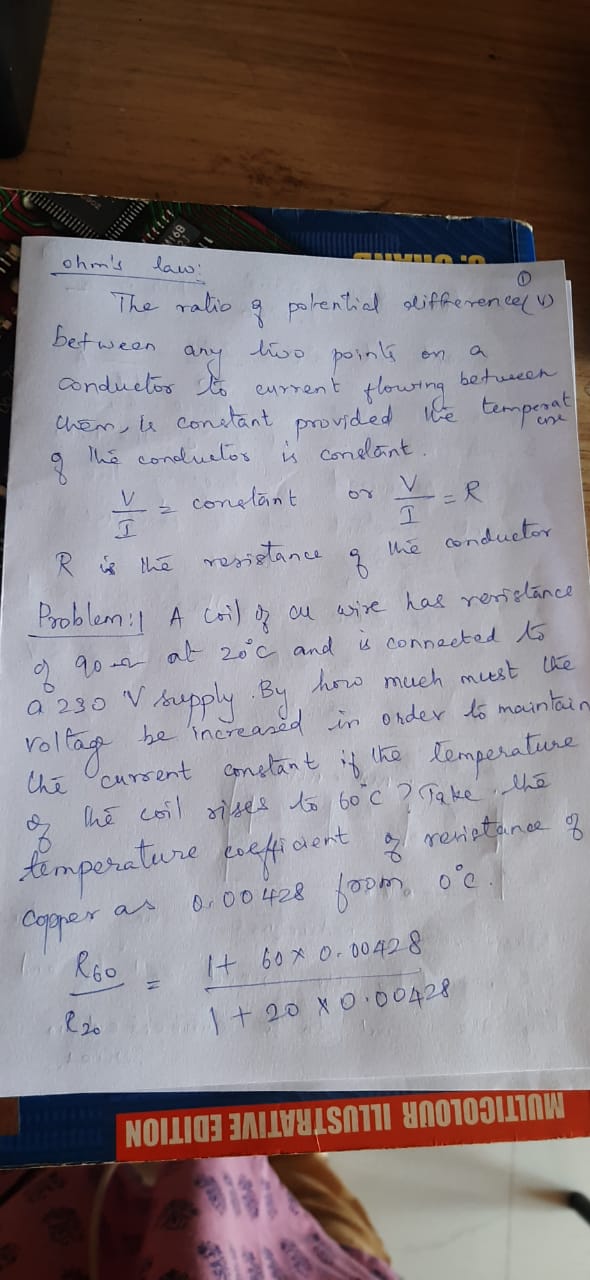 S. CHAND
168
ohm's law:
①
The ratio of potential difference (V)
between any two points on a
conductor to current flowing between
them, is constant provided the temperature
of the conductor is constant.
V/I = constant or V/I = R
R is the resistance of the conductor
Problem:1 A coil of cu wire has resistance
of 90 Ω at 20°C and is connected to
a 230 V supply. By how much must the
voltage be increased in order to maintain
the current constant if the temperature
of the coil rises to 60°C? Take the
temperature coefficient of resistance of
copper as 0.00428 from 0°C.
R60/R20 = 1+ 60 x 0.00428 / 1 + 20 x 0.00428
MULTICOLOUR ILLUSTRATIVE EDITION